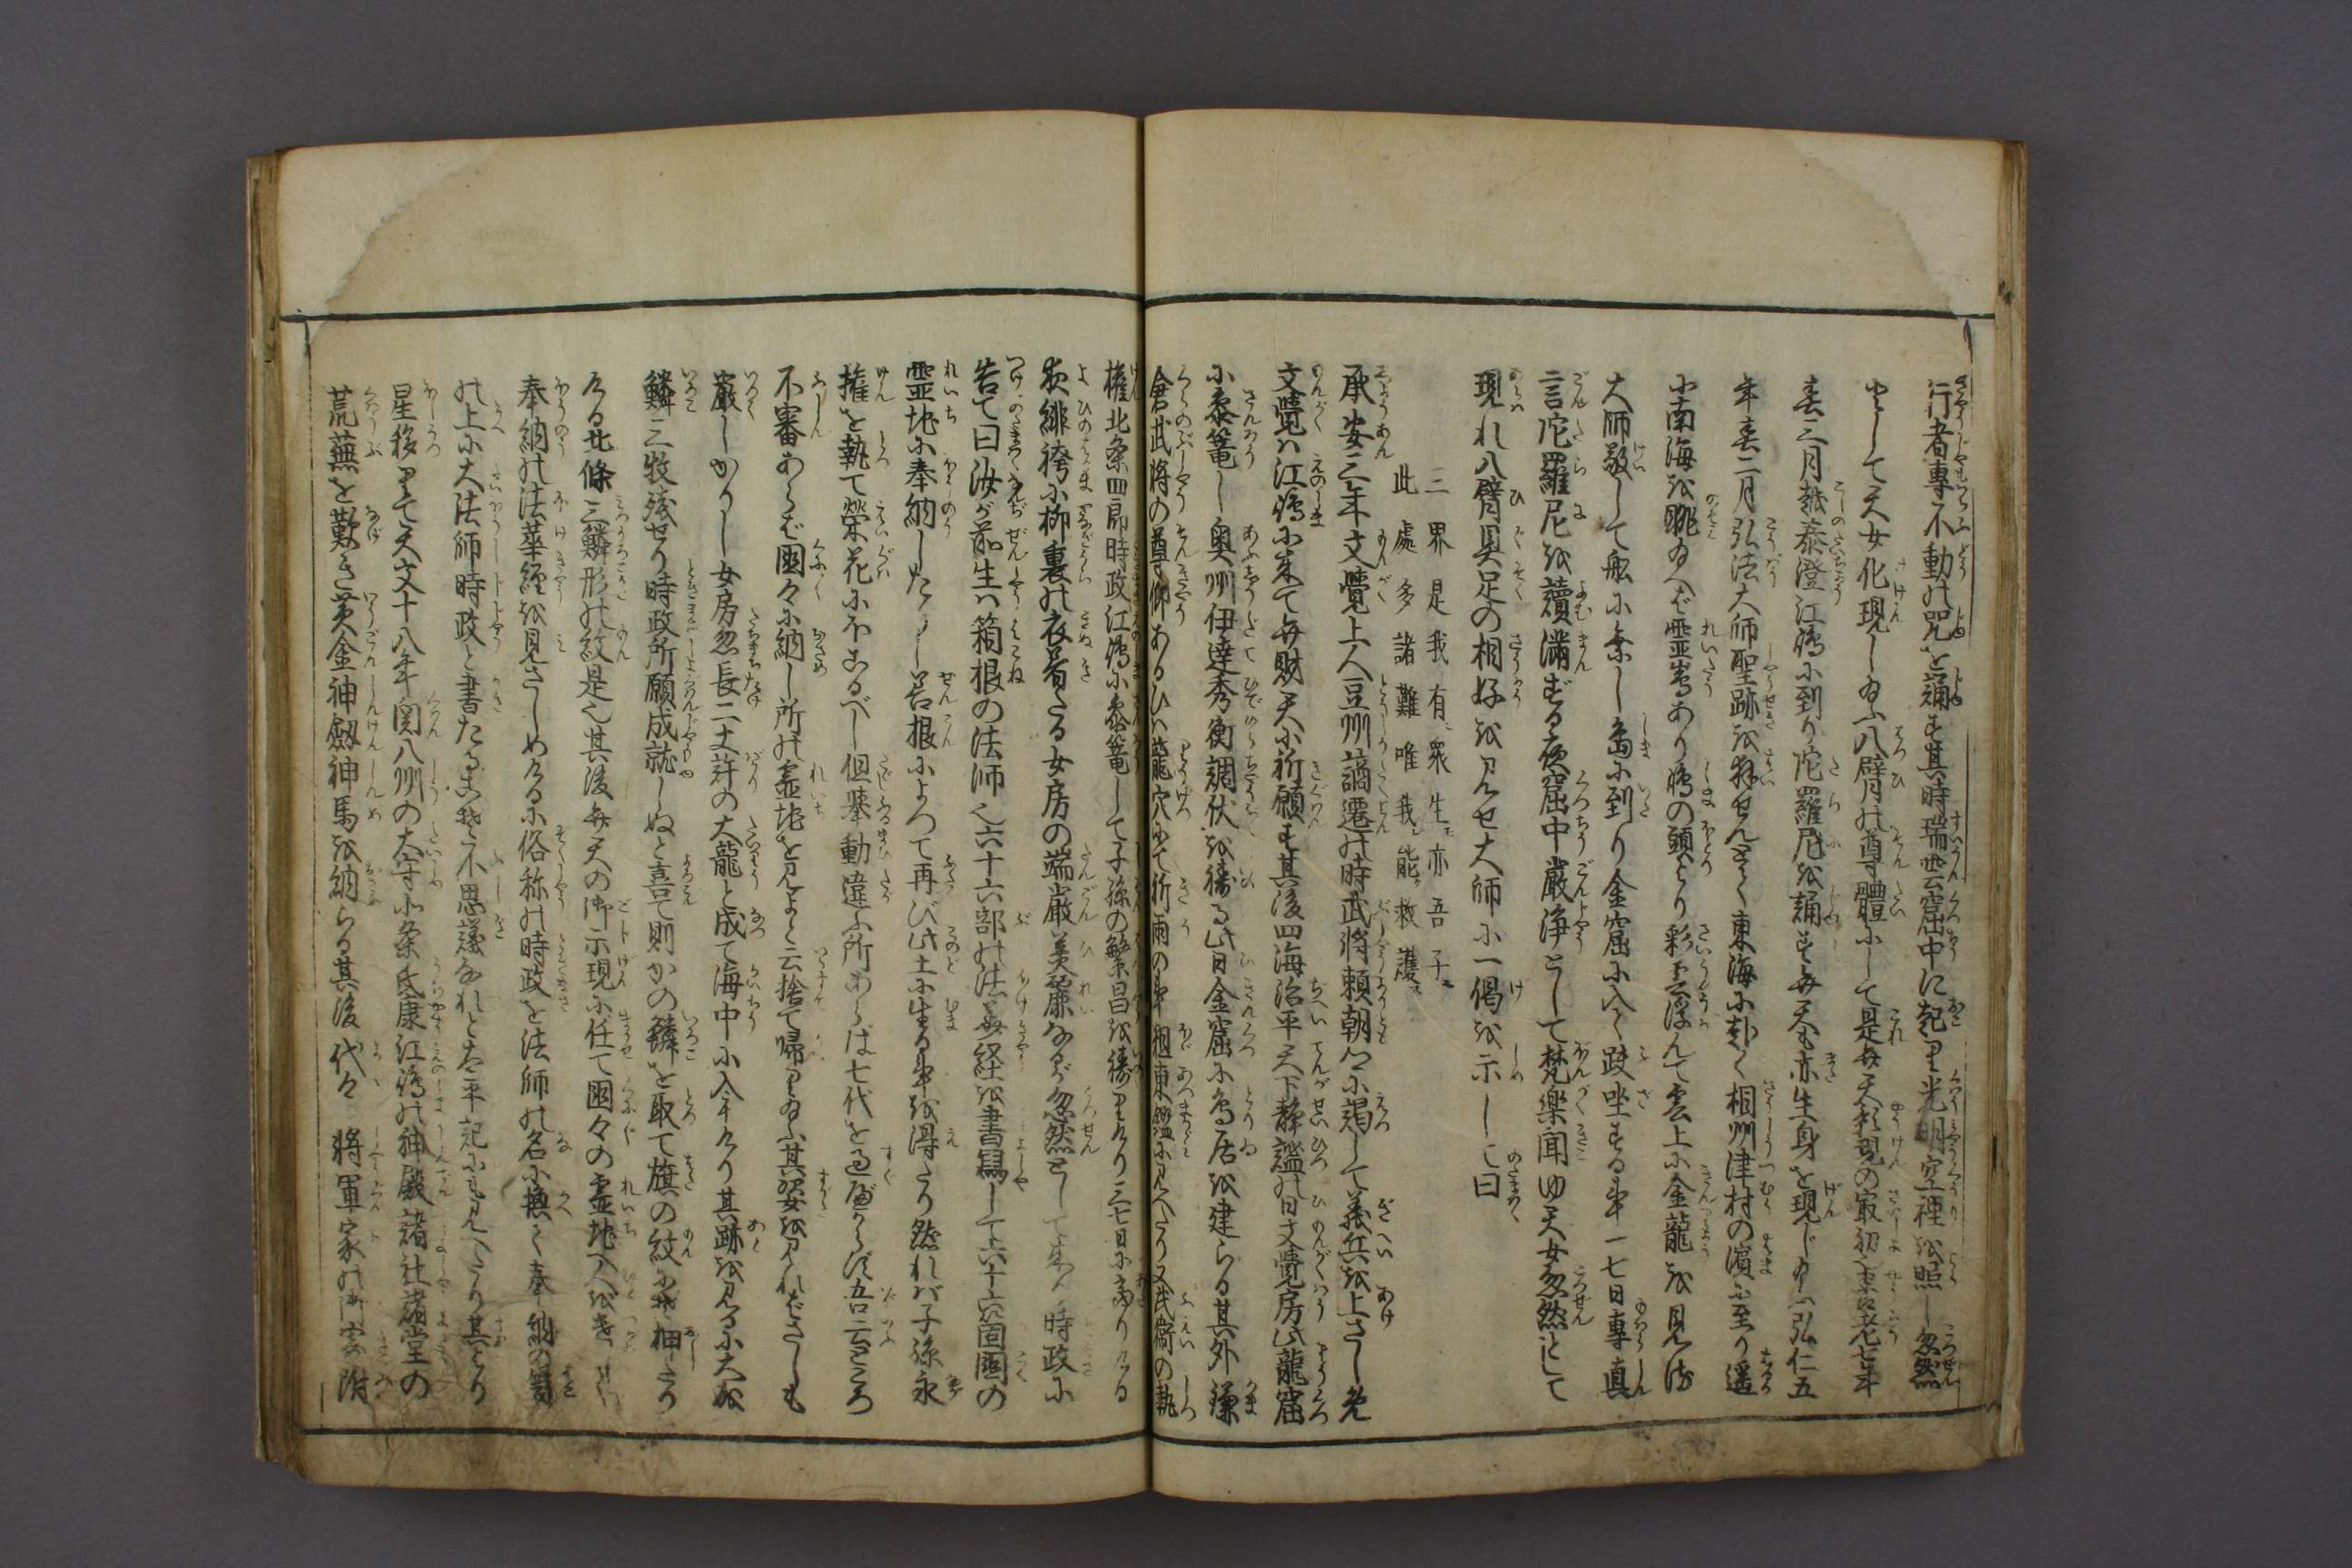 行者專不動の咒を誦す其時瑞雲窟中に起り光明空裡を照し忽然
として天女化現し給ふ八臂の尊體にして是弁天影現の最初也養老七年
春三月越泰澄江嶋に到り陀羅尼を誦す弁天も亦生身を現じ給ふ弘仁五
年春二月弘法大師聖跡を拝せんとて東海に赴く相州津村の濱に至り遥
に南海を眺給へば霊嶌あり嶋の頭より彩雲浮んで雲上に金龍を見給
大師敬して舩に乗し島に到り金窟に入て趺坐する事一七日專真
言陀羅尼を讀滿ずる夜窟中嚴浄として梵樂聞ゆ天女忽然として
現れ八臂具足の相好を見せ大師に一偈を示して曰
三界是我有衆生亦吾子
此處多諸難唯我能救護
承安三年文覺上人豆州謫遷の時武將頼朝公に謁して義兵を上さし先
文覺は江嶋に来て弁財天に祈願す其後四海治平天下静謐の日文覺房此龍窟
に參篭し奥州伊達秀衡調伏を祷る此日金窟に鳥居を建らる其外鎌
倉武將の尊仰あるひは龍穴にて祈雨の事相東鑑に見へたり又武衞の執
權北条四郎時政江嶋に參篭して子孫の繁昌を祷りけり三七日に当りける
夜緋袴に柳裏の衣着たる女房の端嚴美麗なるが忽然として来り時政に
告て曰汝が前生は箱根の法師也六十六部の法華経を書寫して六十六箇國の
霊地に奉納したりし善根によつて再び此土に生る事を得たり然れば子孫永
權を執て榮花にほこるべし但挙動違ふ所あらば七代を過べからず吾云ところ
不審あらば國々に納し所の霊地を見よと云捨て帰り給ふ其姿を見ればさしも
嚴しかりし女房忽長二丈許の大龍と成て海中に入にけり其跡を見るに大なる
鱗三枚残せり時政所願成就しぬと喜て則かの鱗を取て旗の紋にぞ押たり
ける北條三鱗形の紋是也其後弁天の御示現に任て國々の霊地へ人を遣して
奉納の法華経を見さしめけるに俗称の時政を法師の名に換て奉納の筒
の上に大法師時政と書たるこそ不思議なれと太平記にも見へたり其より
星移りて天文十八年関八州の大守北条氏康江嶋の神殿諸社諸堂の
荒蕪を歎き黄金神劔神馬を納らる其後代々將軍家の御寄附